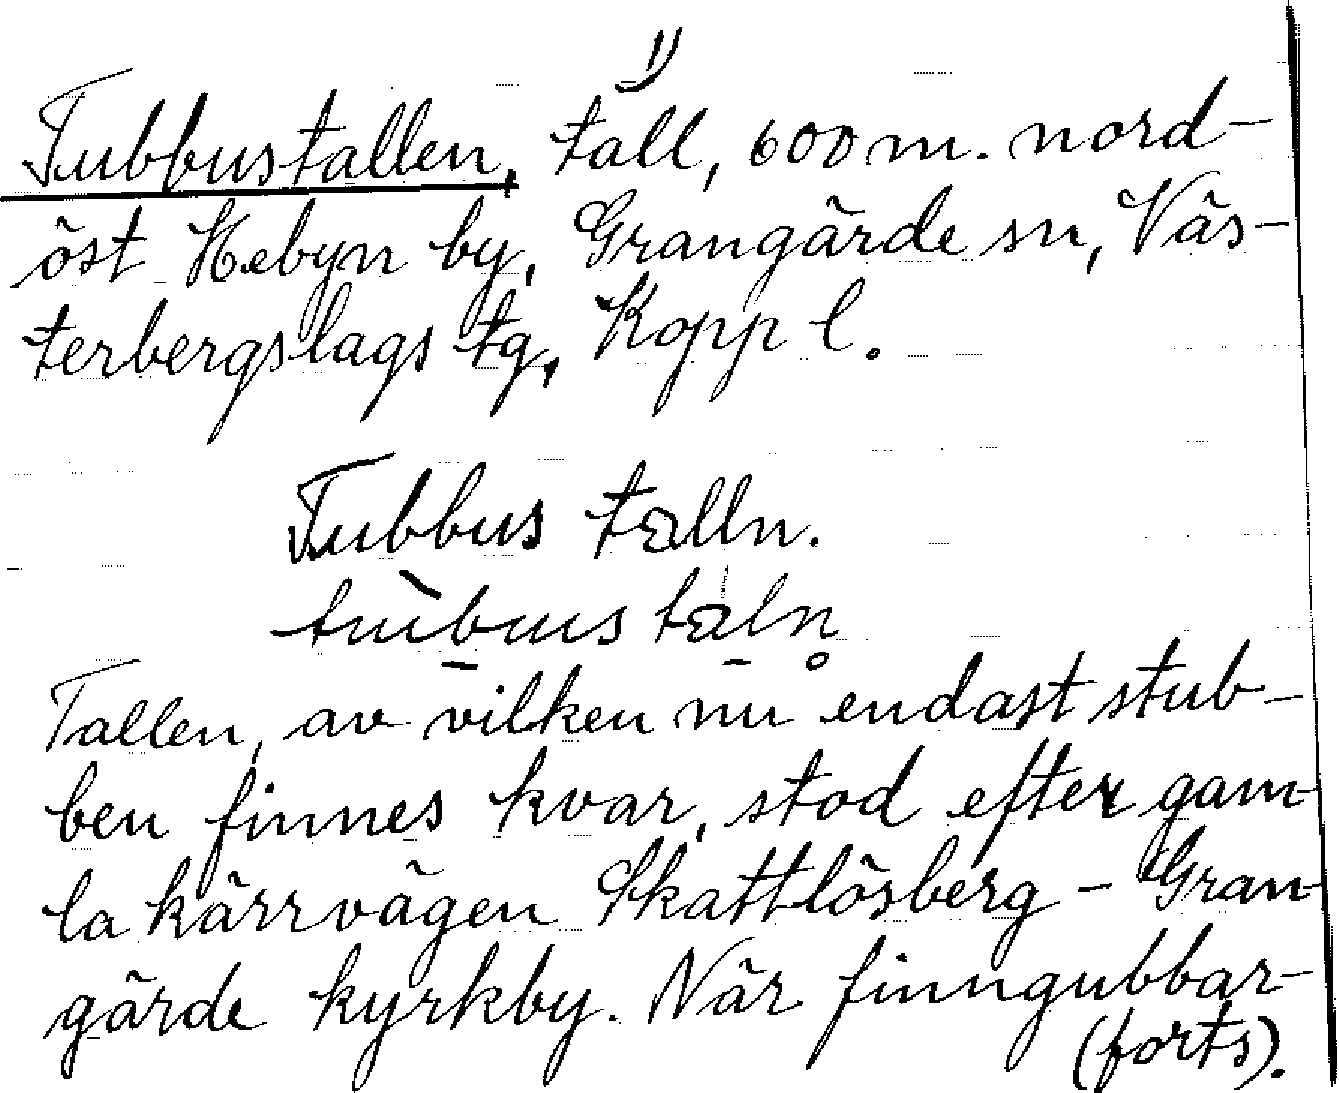 1)
Tubbustallen, tall, 600 m. nord-
öst Hebyn by, Grangärde sn, Väs-
terbergslags tg, Kopp l.
Tubbus talln.
Tallen, av vilken nu endast stub-
ben finnes kvar, stod efter gam-
la kärrvägen Skattlösberg - Gran-
gärde kyrkby. När finngubbar-
(forts).